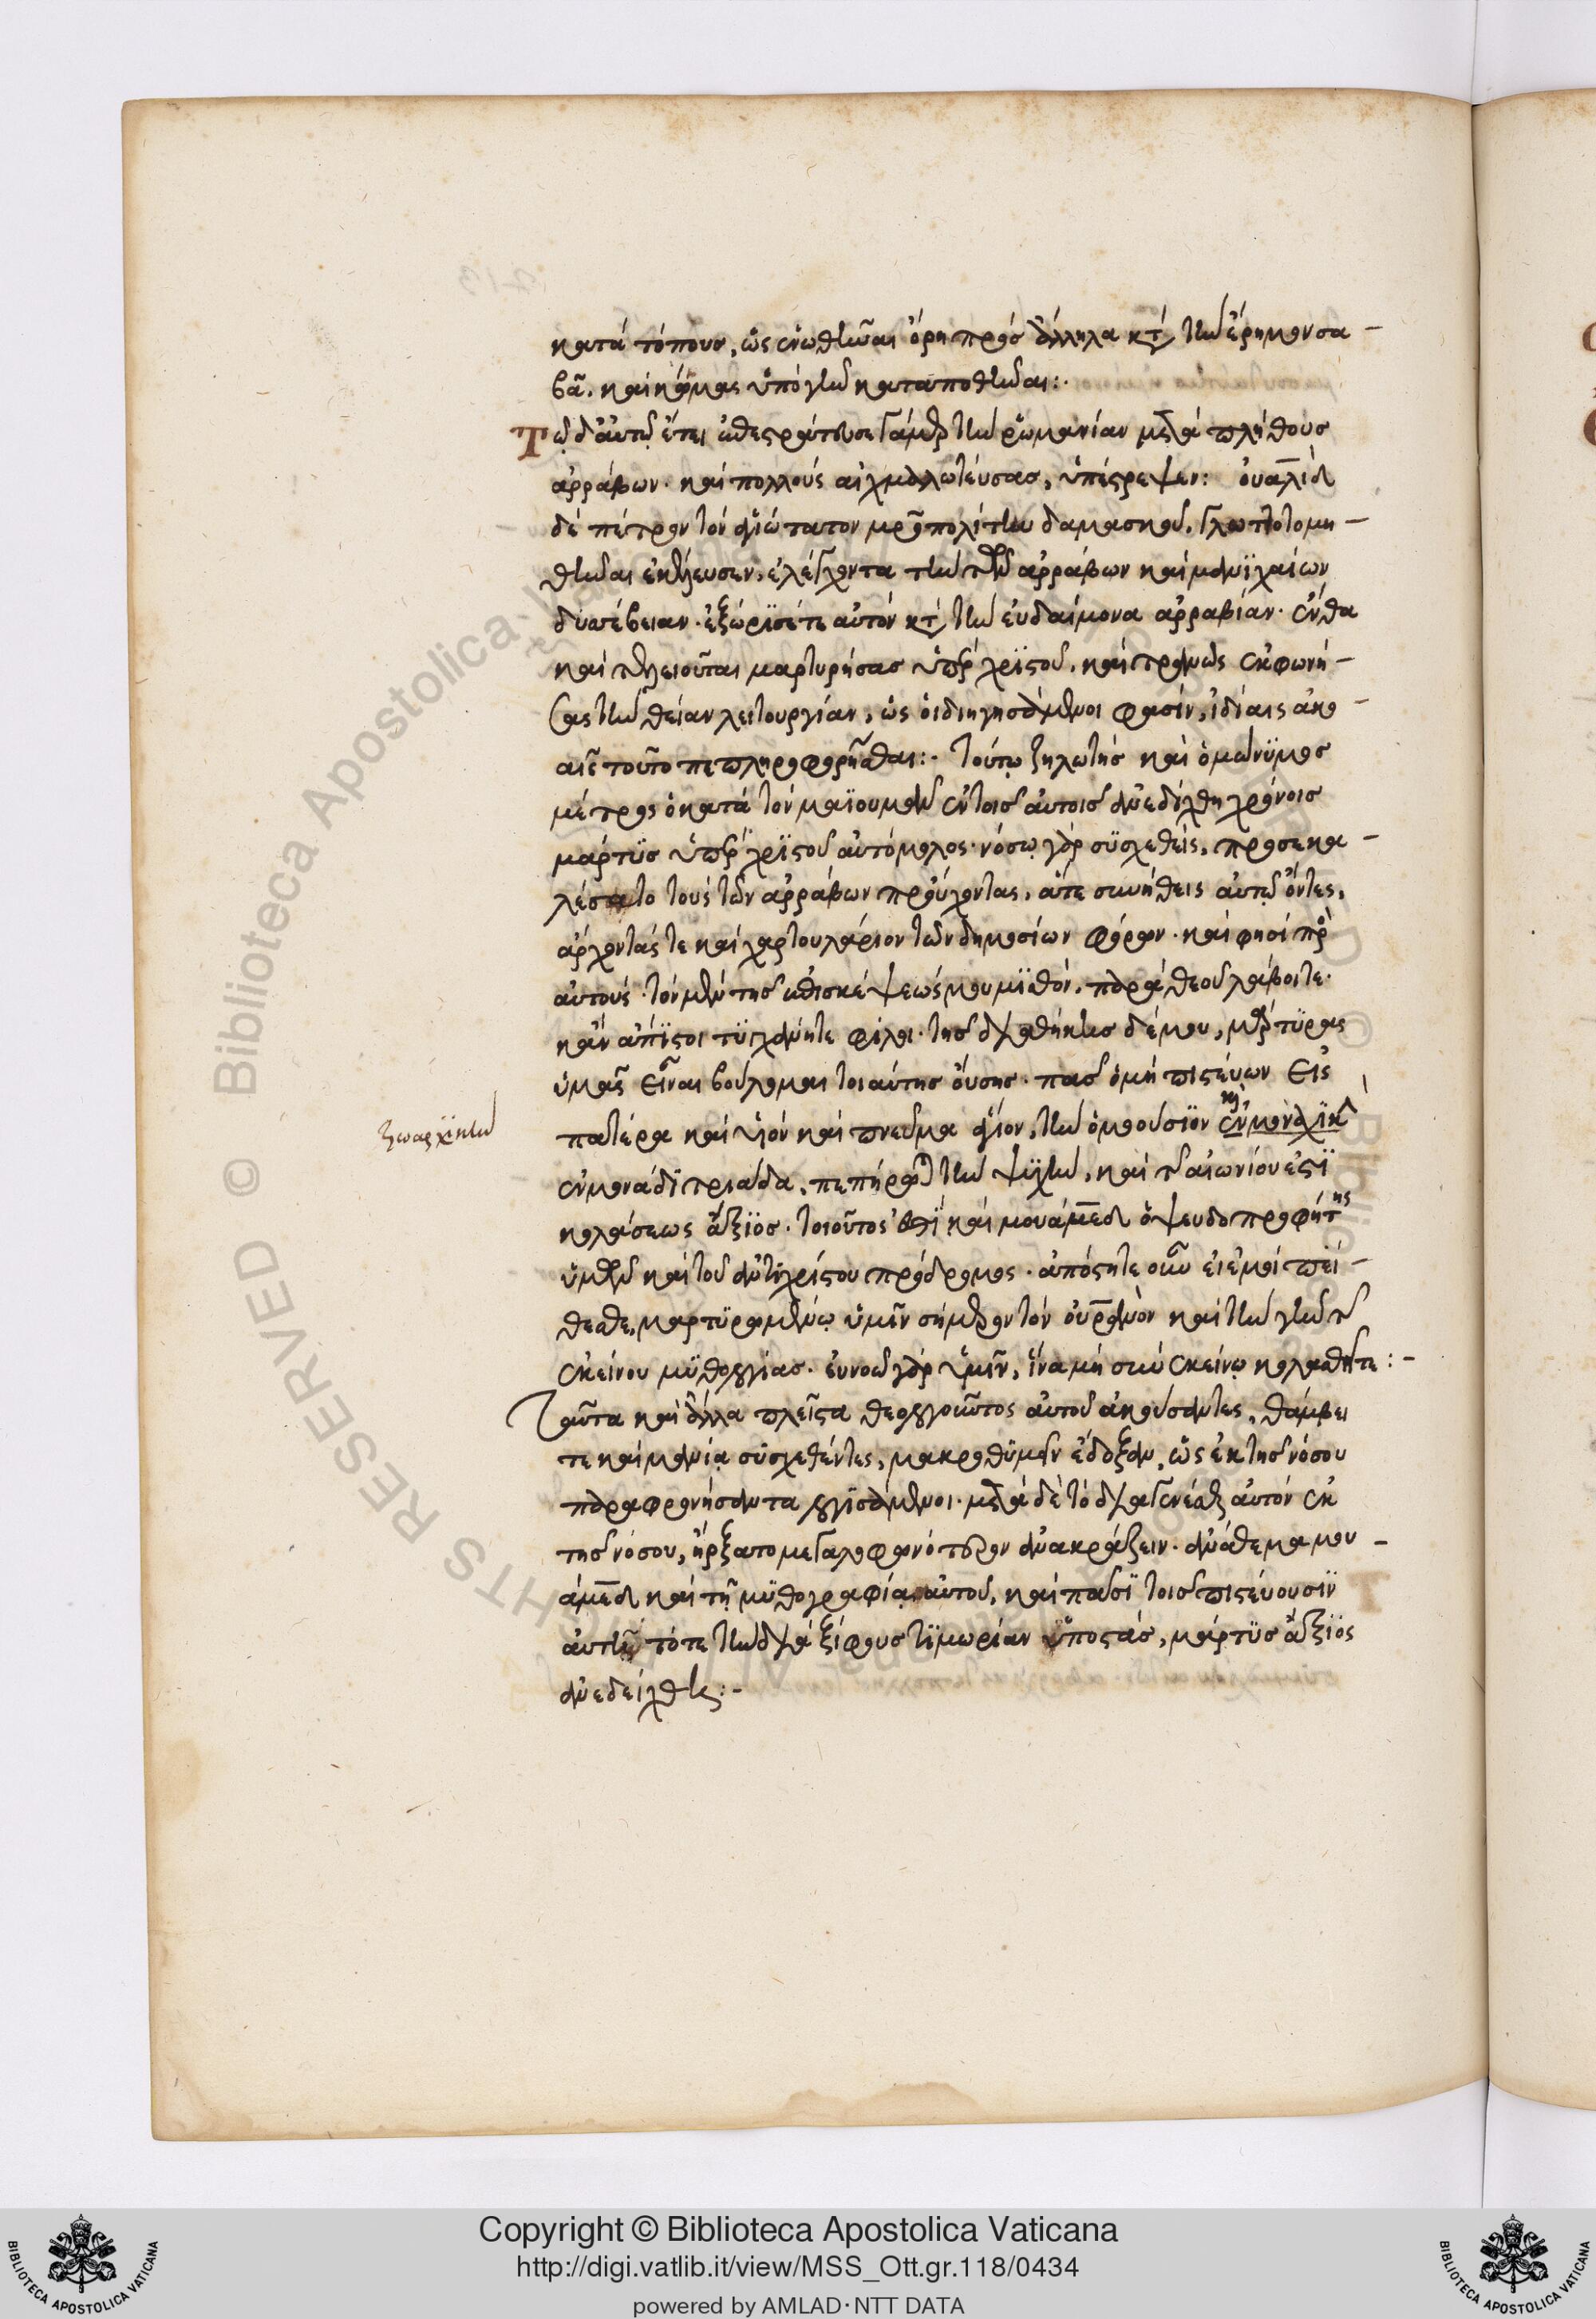 κατὰ τόπους, ὡς ἑνωθῆναι ὄρη πρὸς ἄλληλα κτ τὴν ἔρημον σα-
βᾶ. καὶ κώμας ὑπὸ γῆν καταποθῆναι:.
Τῷ δ' αὐτῷ ἔτει ἐπεστράτευσε γάμερ τὴν ῥωμανίαν μετὰ πλήθους
ἀρράβων. καὶ πολλοὺς αἰχμαλωτεύσας, ὑπέστρεψεν: οὐαλὶδ
δὲ πέτρον τὸν ἁγιώτατον μροπολίτην δαμασκοῦ, γλωττοτομη-
θῆναι ἐκέλευσεν, ἐλέγχοντα τὴν τῶν ἀρράβων καὶ μανϊχαίων
δυσέβειαν. ἐξώρϊσέ τε αὐτὸν κτ τὴν εὐδαίμονα ἀρραβίαν. ἔνθα
καὶ τελειοῦται μαρτυρήσας ὑπὲρ χρϊστοῦ, καὶ τρανῶς ἐκφωνή-
σας τὴν θείαν λειτουργίαν, ὡς οἱ διηγησάμενοι φασὶν, ἰδίαις ἀκο-
αῖς τοῦτο πεπληροφορῆσθαι:. τούτῳ ζηλωτὴς καὶ ὁμώνϋμος
μέτρος ὁ κατὰ τὸν μαϊουμᾶν ἐν τοῖς αὐτοῖς ἀνεδείχθη χρόνοις
μάρτϋς ὑπὲρ χρϊστοῦ αὐτόμολος. νόσῳ γὰρ σϋσχεθεὶς, προσεκα-
λέσατο τοὺς τῶν ἀρράβων προύχοντας, ἅτε συνήθεις αὐτῷ ὄντες,
ἄρχοντάς τε καὶ χαρτουλάριον τῶν δημοσίων φόρων. καὶ φησὶ πρ
αὐτούς. τὸν μὲν τῆς ἐπισκέψεώς μου μϊσθὸν, παρὰ θεοῦ λάβοιτε.
κἂν ἄπϊστοι τϋγχάνητε φίλοι. τῆς διαθήκης δέ μου, μάρτϋρας
ὑμᾶς εἶναι βούλομαι τοιαύτης οὔσης. πᾶς ὁ μὴ πιστεύων εἰς
πατέρα καὶ υἱὸν καὶ πνεῦμα ἅγιον, τὴν ὁμοούσϊον
ζωαρχϊκὴν
ἐν μονάδϊ τριάδα, πεπήρωται τὴν ψϋχὴν, καὶ τ αἰωνίου ἐστϊ
κολάσεως ἄξϊος. τοιοῦτος ἐστϊ καὶ μουάμεδ ὁ ψευδοπροφήτης
ὑμῶν καὶ τοῦ ἀντϊχρίστου πρόδρομος. ἀπόστητε οὖν εἰ ἐμοὶ πεί-
θεσθε, μαρτϋρομένῳ ὑμῖν σήμερον τὸν οὐρανὸν καὶ τὴν γῆν τ
ἐκείνου μϋθολογίας. εὐνοῶ γὰρ ὑμῖν, ἵνα μὴ σὺν ἐκείνῳ κολασθῆτε:-
Ταῦτα καὶ ἄλλα πλεῖστα θεολογοῦντος αὐτοῦ ἀκούσαντες, θάμβει
τε καὶ μανίᾳ σϋσχεθέντες, μακροθϋμεῖν ἔδοξαν, ὡς ἐκ τῆς νόσου
παραφρονήσαντα λογϊσάμενοι. μετὰ δὲ τὸ διαγενέσθαι αὐτὸν ἐκ
τῆς νόσου, ἤρξατο μεγαλοφωνότερον ἀνακράζειν. ἀνάθεμα μου-
άμεδ καὶ τῇ μϋθογραφίᾳ αὐτοῦ, καὶ πᾶσϊ τοῖς πιστεύουσϊν
αὐτῇ τότε τὴν διὰ ξίφους τϊμωρίαν ὑποστὰς, μάρτϋς ἄξϊος
ἀνεδείχθη:-
Copyright © Biblioteca Apostolica Vaticana
http://digi.vatlib.it/view/MSS_Ott.gr.118/0434
powered by AMLAD·NTT DATA